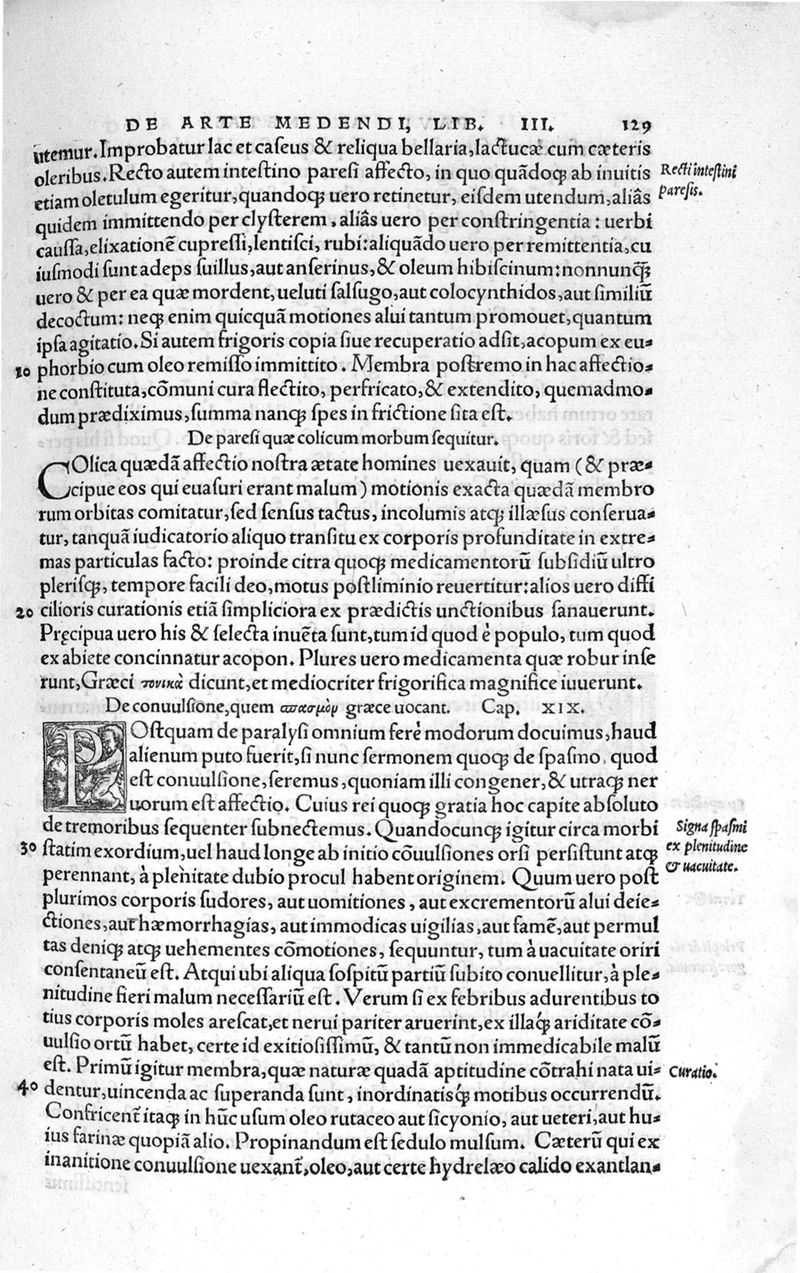 DE ARTE MEDENDI, LIB. III. 129
utemur. Improbatur lac et caſeus & reliqua bellaria, lactucæ cum cæteris
oleribus. Recto autem inteſtino pareſi affecto, in quo quãdoq; ab inuitis
Recti inteſtini
pareſis.
etiam oletulum egeritur, quandoq; uero retinetur, eiſdem utendum, aliâs
quidem immittendo per clyſterem, aliâs uero per conſtringentia: uerbi
cauſſa, elixatione͂ cupreſſi, lentiſci, rubi: aliquãdo uero per remittentia, cu
iuſmodi ſunt adeps ſuillus, aut anſerinus, & oleum hibiſcinum: nonnunq̃;
uero & per ea quæ mordent, ueluti ſalſugo, aut colocynthidos, aut ſimiliũ
decoctum: neq; enim quicquã motiones alui tantum promouet, quantum
ipſa agitatio. Si autem frigoris copia ſiue recuperatio adſit, acopum ex eu-
10 phorbio cum oleo remiſſo immittito. Membra poſtremo in hac affectio-
ne conſtituta, cõmuni cura flectito, perfricato, & extendito, quemadmo-
dum prædiximus, ſumma nanq; ſpes in frictione ſita eſt.
De pareſi quæ colicum morbum ſequitur.
COlica quædã affectio noſtra ætate homines uexauit, quam (& præ-
cipue eos qui euaſuri erant malum) motionis exacta quædã membro
rum orbitas comitatur, ſed ſenſus tactus, incolumis atq; illæſus conſerua-
tur, tanquã iudicatorio aliquo tranſitu ex corporis profunditate in extre-
mas particulas facto: proinde citra quoq; medicamentorũ ſubſidiũ ultro
pleriſq;, tempore facili deo, motus poſtliminio reuertitur: alios uero diffi
20 cilioris curationis etiã ſimpliciora ex prædictis unctionibus ſanauerunt.
Pręcipua uero his & ſelecta inuẽta ſunt, tum id quod è populo, tum quod
ex abiete concinnatur acopon. Plures uero medicamenta quæ robur inſe
runt, Græci τονικὰ dicunt, et mediocriter frigorifica magnifice iuuerunt.
De conuulſione, quem σπασμὸν græce uocant. Cap. XIX.
POſtquam de paralyſi omnium ferè modorum docuimus, haud
alienum puto fuerit, ſi nunc ſermonem quoq; de ſpaſmo, quod
eſt conuulſione, ſeremus, quoniam illi congener, & utraq; ner
uorum eſt affectio. Cuius rei quoq; gratia hoc capite abſoluto
de tremoribus ſequenter ſubnectemus. Quandocunq; igitur circa morbi
Signa ſpaſmi
ex plenitudine
& uacuitate.
30 ſtatim exordium, uel haud longe ab initio cõuulſiones orſi perſiſtunt atq;
perennant, à plenitate dubio procul habent originem. Quum uero poſt
plurimos corporis ſudores, aut uomitiones, aut excrementorũ alui deie-
ctiones, aut hæmorrhagias, aut immodicas uigilias, aut famẽ, aut permul
tas deniq; atq; uehementes cõmotiones, ſequuntur, tum à uacuitate oriri
conſentaneũ eſt. Atqui ubi aliqua ſoſpitũ partiũ ſubito conuellitur, à ple-
nitudine fieri malum neceſſariũ eſt. Verum ſi ex febribus adurentibus to
tius corporis moles areſcat, et nerui pariter aruerint, ex illaq́; ariditate cõ-
uulſio ortũ habet, certe id exitioſiſſimũ, & tantũ non immedicabile malũ
eſt. Primũ igitur membra, quæ naturæ quadã aptitudine cõtrahi nata ui-
Curatio.
40 dentur, uincenda ac ſuperanda ſunt, inordinatiſq́; motibus occurrendũ.
Confricent̃ itaq; in hũc uſum oleo rutaceo aut ſicyonio, aut ueteri, aut hu-
ius farinæ quopiã alio. Propinandum eſt ſedulo mulſum. Cæterũ qui ex
inanitione conuulſione uexant̃, oleo, aut certe hydrelæo calido exantlan-